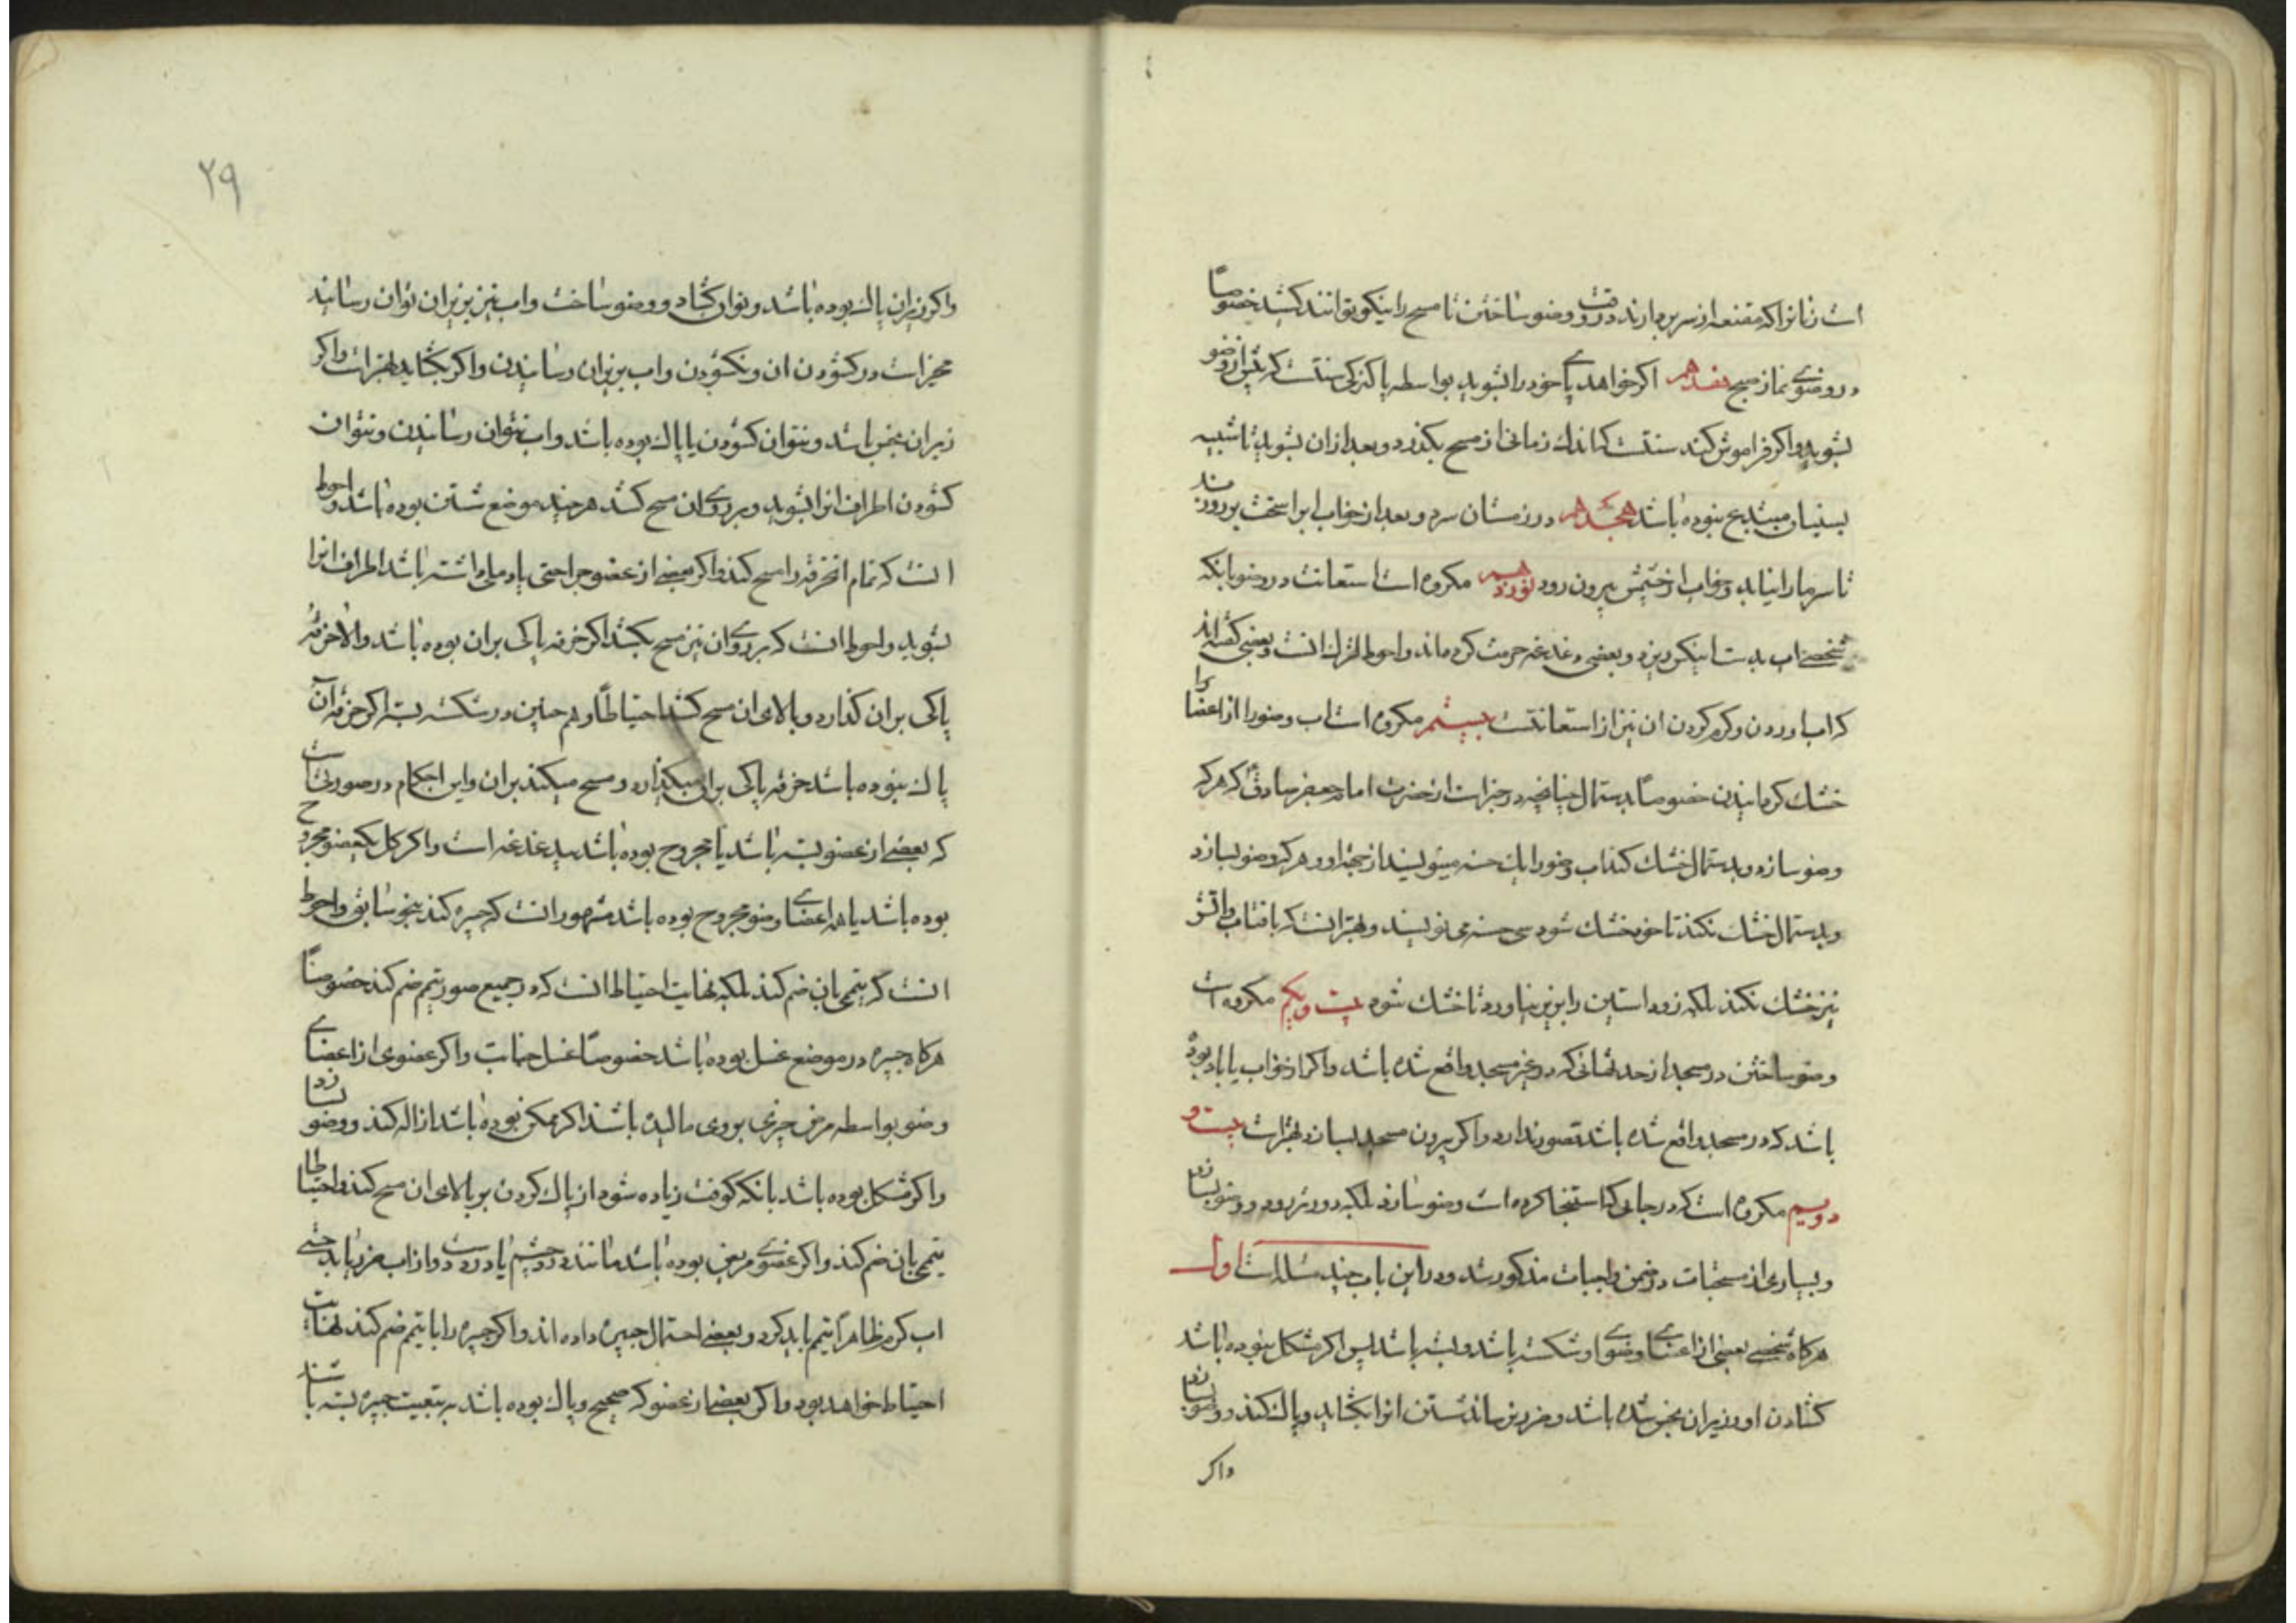 است زنانرا که مقنعه از سر بردارند در وقت وضو ساختن تا مسح را نیکو توانند کشید خصوصاً
در وضوی نماز صبح هفدهم اکر خواهد پای خود را بشوید بواسطه پاکیزکی سنتست که پیش از وضو
بشوید و اکر فراموش کند سنتست که اندك زمانی از مسح بکذرد و بعد از ان بشوید تا شبیه
بسنیان مبتدع نبوده باشد هجدهم در زمستان سرد و بعد از خواب ابرا سخت بر رو زند
تا سرما را نیابد و خواب از چشمش بیرون رود نوزدهم مکروه است استعانت در وضو بانکه
شخصی اب بدست اینکس ریزد و بعضی دغدغه حرمت کرده‌اند و احوط الترك انست و بعضی کفته‌اند
که اب اوردن و کرم کردن ان نیز از استعانتست بیستم مکروه است اب وضو را از اعضا
خشك کردانیدن خصوصاً بدستمال چنانچه در خبر است از حضرت امام جعفر صادق که هر که
وضو سازد و بدستمال خشك کند اب وضو را یك حسنه مینویسند از جهة او و هر که وضو بسازد
و بدستمال خشك نکند تا خود خشك شود سی حسنه می نویسند و بهتر انست که بافتاب و اتش
نیز خشك نکند بلکه زود استین را بزیر نیاورد تا خشك شود بیست و یکم مکروه است
وضو ساختن در مسجد از حدثهائی که در غیر مسجد واقع شده باشد و اکر از خواب یا باد بوده
باشد که در مسجد واقع شده باشد قصور ندارد و اکر بیرون مسجد بسازد بهتر است بیست و
دویم مکروه است که در جایی که استنجا کرده است وضو سازد بلکه دورتر رود و وضو بسازد
و بسیاری از مستحبات در ضمن واجبات مذکور شد و در این باب چند مسئله است اول
هرکاه شخصی بعضی از اعضای وضوی او شکسته باشد و بسته باشد پس اکر مشکل نبوده باشد
کشادن او و زیر ان نجس شده باشد و ضرر نرساند شستن انرا بکشاید و پاك کند و وضو بسازد
واکر
٢٩
واکر زیر ان پاك بوده باشد و توان کشاد و وضو ساخت و اب نیز بزیر ان توان رسانید
مخیر است در کشودن ان و نکشودن و اب بزیر ان رسانیدن و اکر بکشاید بهتر است و اکر
زیر ان نجس باشد و نتوان کشودن یا پاك بوده باشد و اب نتوان رسانیدن و نتوان
کشودن اطراف انرا بشوید و بر روی ان مسح کشد هر چند موضع شستن بوده باشد و احوط
انست که تمام ان خرقه را مسح کند و اکر بعضی از عضو جراحتی یا دملی داشته باشد اطراف انرا
بشوید و احوط انست که بر روی ان نیز مسح بکشد اکر خرقه پاکی بران بوده باشد و الا خرقه
پاکی بران کذارد و بالای ان مسح کشد احتیاطاً و هم چنین در شکسته بسته اکر خرقه ان
پاك نبوده باشد خرقه پاکی بران میکذارد و مسح میکند بران و این احکام در صورتیست
که بعضی از عضو بسته باشد یا مجروح بوده باشد بیدغدغه است و اکر کل یکعضو مجروح
بوده باشد یا همه اعضای وضو مجروح بوده باشد مشهور انست که جبیره کند بنحو سابق و احوط
انست که تیمم بان ضم کند بلکه نهایت احتیاط انست که در جمیع صور تیمم ضم کند خصوصاً
هرکاه جبیره در موضع غسل بوده باشد خصوصاً غسل جنابت و اکر عضوی از اعضای
وضو بواسطه مرض چیزی بروی مالیده باشند اکر ممکن بوده باشد ازاله کند و وضو سازد
و اکر مشکل بوده باشد بانکه کوفت زیاده شود از پاك کردن بر بالای ان مسح کند و احتیاطا
تیمم بان ضم کند و اکر عضوی مریض بوده باشد مانند درد چشم یا درد دست و از اب ضرر یابد حتی
اب کرم ظاهراً تیمم باید کرد و بعضی احتمال جبیره داده‌اند و اکر جبیره را با تیمم ضم کند نهایت
احتیاط خواهد بود و اکر بعضی از عضو که صحیح و پاك بوده باشد به تبعیت جبیره بسته باشند